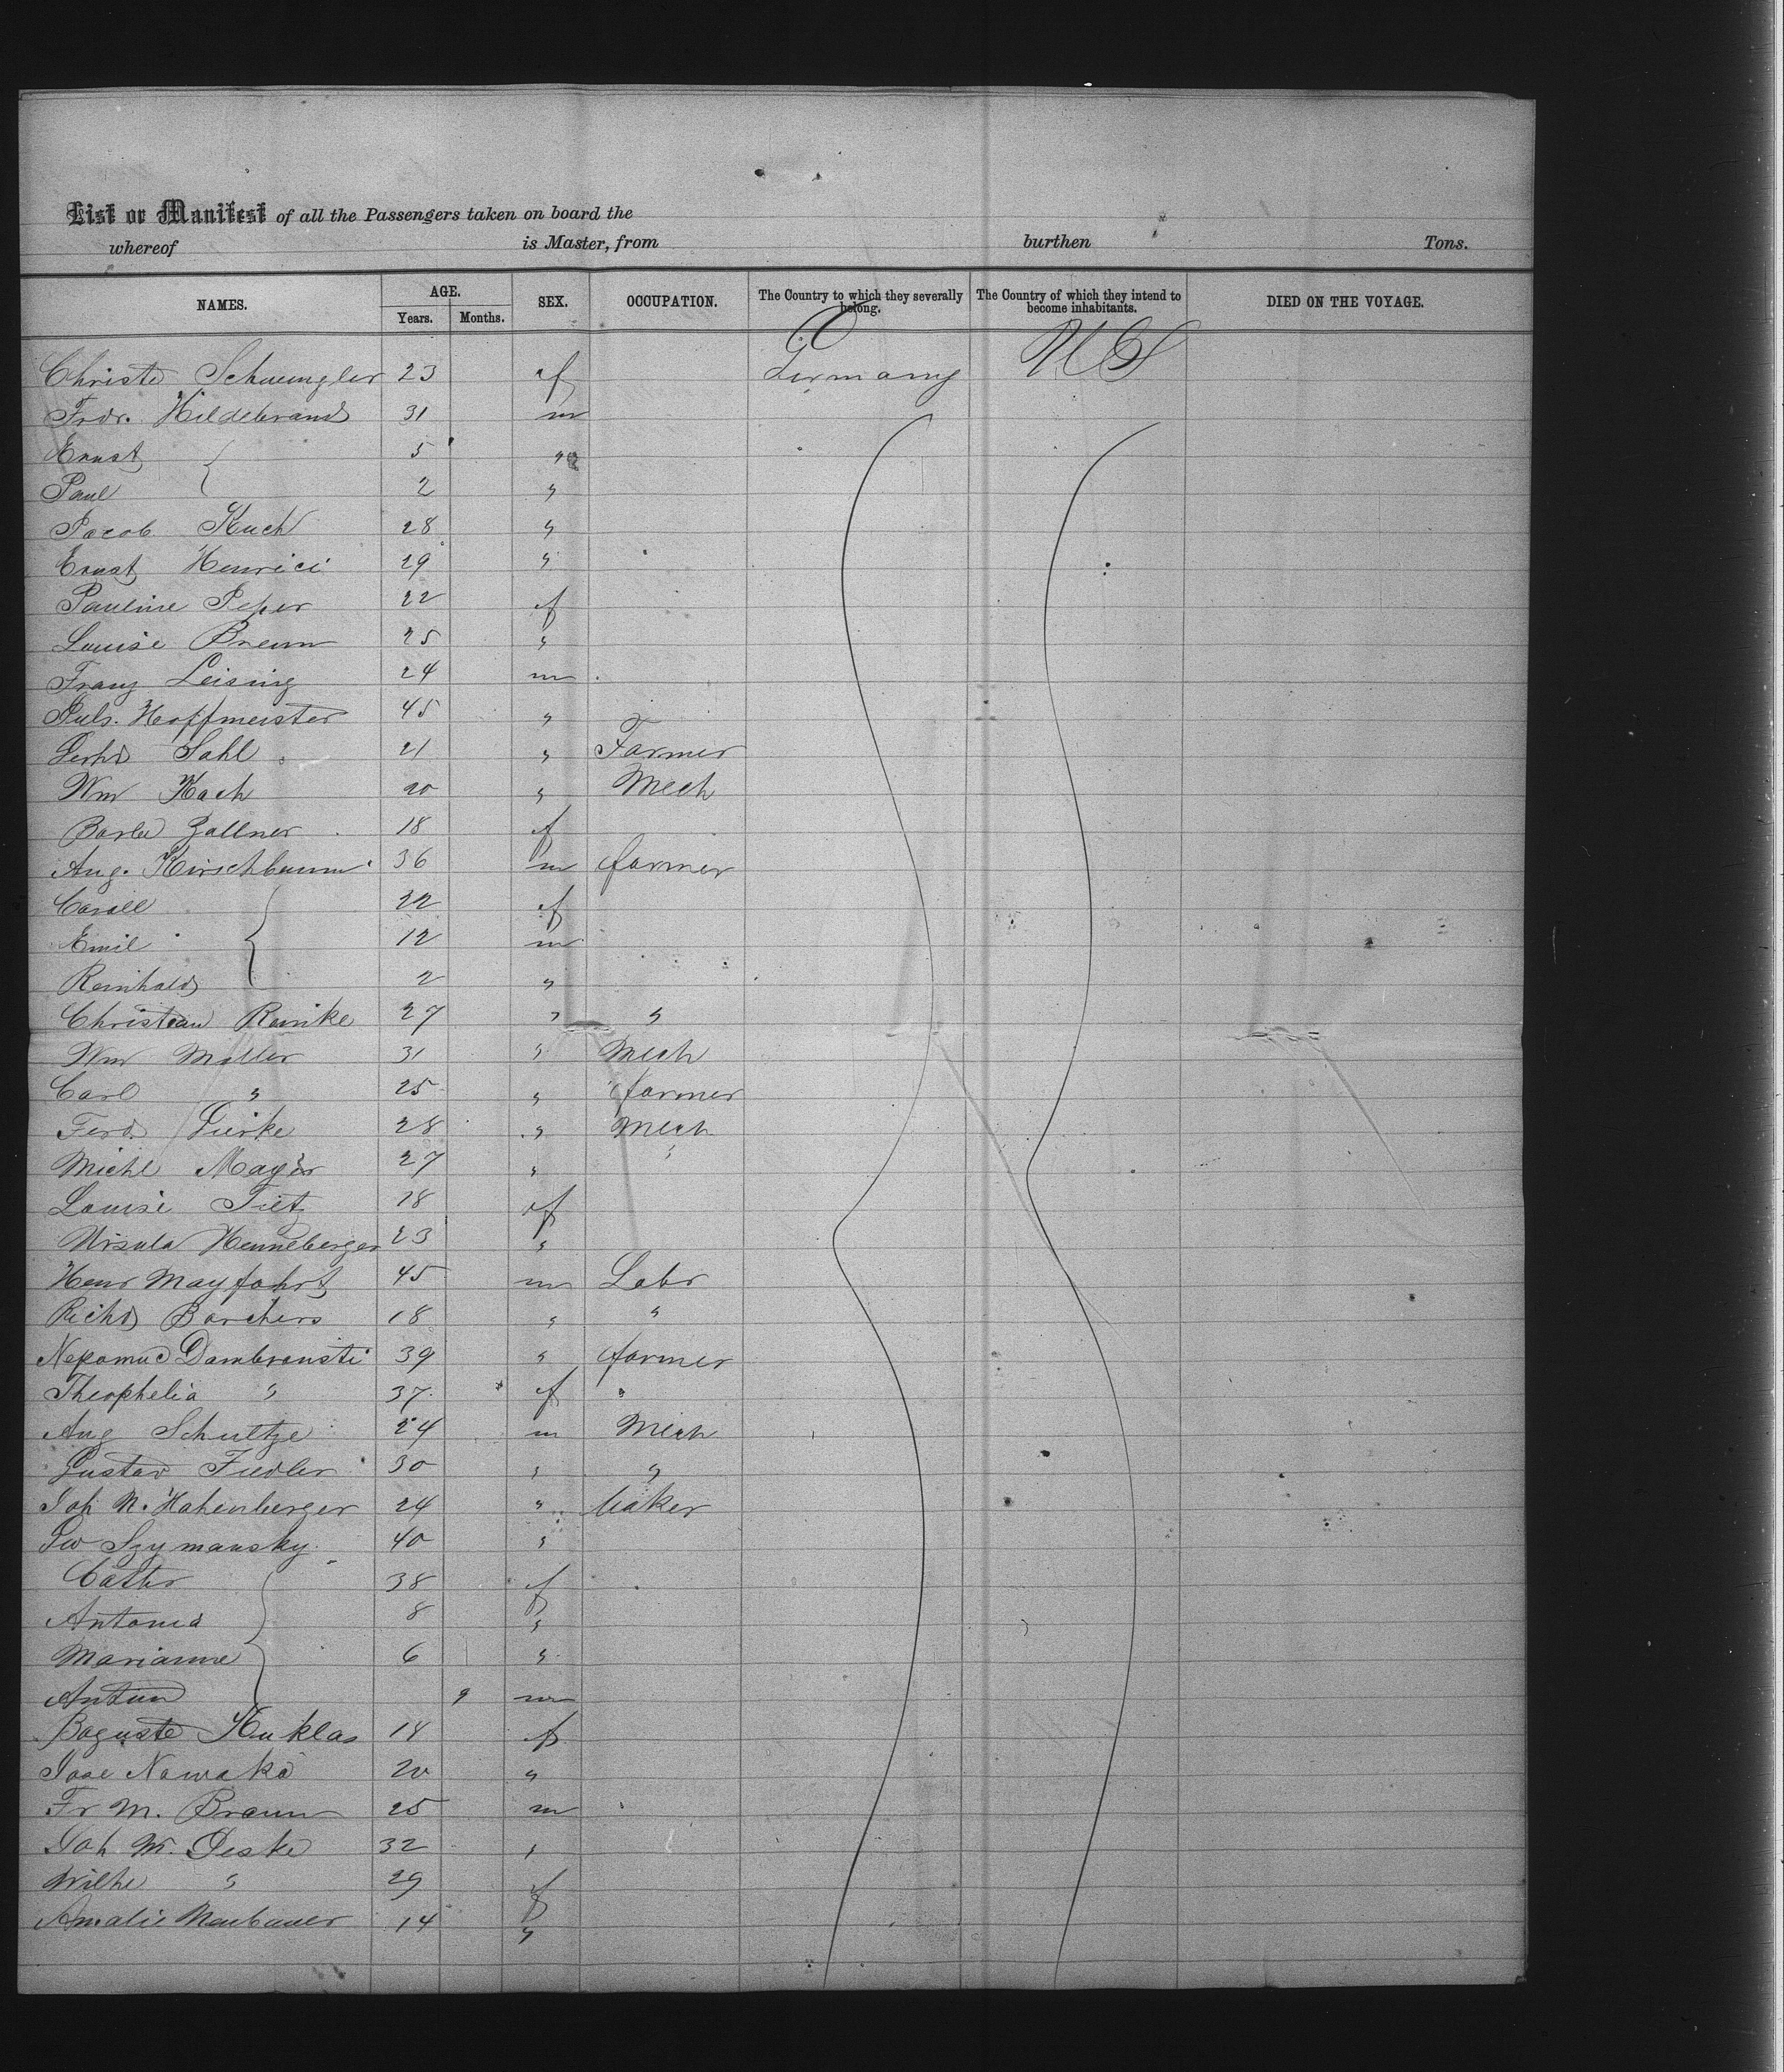 List or Manifest of all the Passengers taken on board the
whereof is Master, from burthen Tons.
NAMES. AGE. Years. Months. SEX. OCCUPATION. The Country to which they severally belong. The Country of which they intend to become inhabitants. DIED ON THE VOYAGE.
Christe Schwengler 23 f Germany US
Fredr. Hildebrand 31 m
Ernst 5 "
Paul 2 "
Jacob Kuch 28 "
Ernst Henrici 29 "
Pauline Peper 22 f
Louise Breun 25 "
Franz Leising 24 m
Juls. Hoffmeister 45 "
Gerhd Sahl 21 " Farmer
Wm Koch 20 " Mech
Barba Zallner 18 f
Aug. Kirschbaum 36 m farmer
Caroll 22 f
Emil 12 m
Reinhold 2 "
Christian Reinike 27 " "
Wm Moller 31 " Mech
Carl " 25 " farmer
Ferd. Gierke 28 " Mech
Michl Mayer 27 " "
Louise Tietz 18 f
Ursula Henneberger 23 "
Henr Mayfahrt 45 m Labr
Richd Borchers 18 " "
Nepomuc Dombronsti 39 " farmer
Theophelia " 37 f "
Aug Schultze 24 m Mech
Gustav Fiedler 30 " "
Joh N. Hahenberger 24 " baker
Szymansky 40 "
Cathr 38 f
Antonia 8 "
Marianne 6 "
Anton 9 m
Boguste Kuklas 18 f
Jose Nowako 20 "
Fr M. Braun 25 m
Joh M. Jeske 32 "
Wilhe " 29 f
Amalie Neubauer 14 "